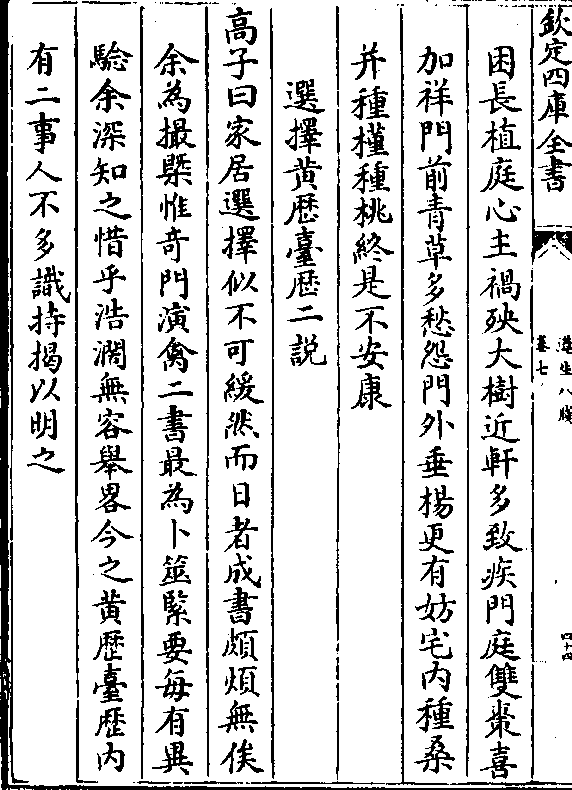 欽定四庫全書
遵生八牋
卷七
四十四
困長植庭心主禍殃大樹近軒多致疾門庭雙棗喜
加祥門前青草多愁怨門外垂楊更有妨宅內種桑
并種槿種桃終是不安康
選擇黃歷臺歷二説
高子曰家居選擇似不可緩然而日者成書頗煩無俟
余為撮槩惟奇門演禽二書最為卜筮緊要每有異
驗余深知之惜乎浩濶無容舉畧今之黃歷臺歷內
有二事人不多識持揭以明之